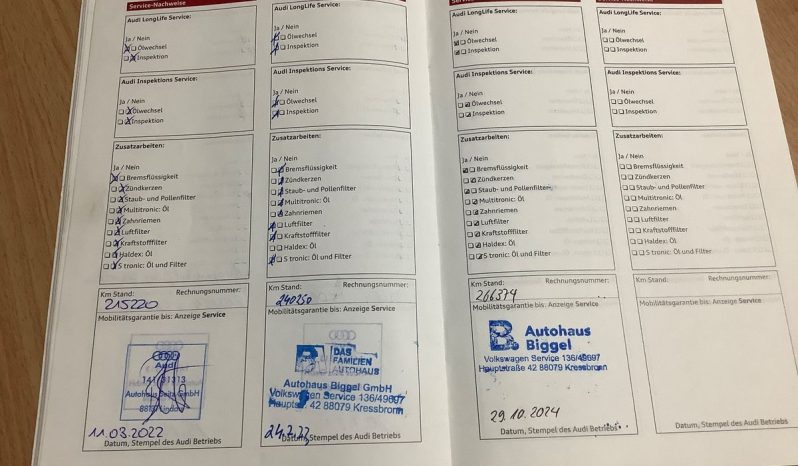 Service-Nachweise
Audi LongLife Service:
Ja / Nein
Ölwechsel
Inspektion
Audi Inspektions Service:
Ja / Nein
Ölwechsel
Inspektion
Zusatzarbeiten:
Ja / Nein
Bremsflüssigkeit
Zündkerzen
Staub- und Pollenfilter
Multitronic: Öl
Zahnriemen
Luftfilter
Kraftstofffilter
Haldex: Öl
S tronic: Öl und Filter
Km Stand: Rechnungsnummer:
215220
Mobilitätsgarantie bis: Anzeige Service
Audi
11.03.2022
Datum, Stempel des Audi Betriebs
Audi LongLife Service:
Ja / Nein
Ölwechsel
Inspektion
Audi Inspektions Service:
Ja / Nein
Ölwechsel
Inspektion
Zusatzarbeiten:
Ja / Nein
Bremsflüssigkeit
Zündkerzen
Staub- und Pollenfilter
Multitronic: Öl
Zahnriemen
Luftfilter
Kraftstofffilter
Haldex: Öl
S tronic: Öl und Filter
Km Stand: Rechnungsnummer:
240250
Mobilitätsgarantie bis: Anzeige Service
DAS
FAMILIEN
AUTOHAUS
Autohaus Biggel GmbH
Volkswagen Service 136/49697
Hauptstr. 42 88079 Kressbronn
Datum, Stempel des Audi Betriebs
Audi LongLife Service:
Ja / Nein
Ölwechsel
Inspektion
Audi Inspektions Service:
Ja / Nein
Ölwechsel
Inspektion
Zusatzarbeiten:
Ja / Nein
Bremsflüssigkeit
Zündkerzen
Staub- und Pollenfilter
Multitronic: Öl
Zahnriemen
Luftfilter
Kraftstofffilter
Haldex: Öl
S tronic: Öl und Filter
Km Stand: Rechnungsnummer:
266374
Mobilitätsgarantie bis: Anzeige Service
B. Autohaus
Biggel
Volkswagen Service 136/49697
Hauptstraße 42 88079 Kressbronn
29.10.2024
Datum, Stempel des Audi Betriebs
Service-Nachweise
Audi LongLife Service:
Ja / Nein
Ölwechsel
Inspektion
Audi Inspektions Service:
Ja / Nein
Ölwechsel
Inspektion
Zusatzarbeiten:
Ja / Nein
Bremsflüssigkeit
Zündkerzen
Staub- und Pollenfilter
Multitronic: Öl
Zahnriemen
Luftfilter
Kraftstofffilter
Haldex: Öl
S tronic: Öl und Filter
Km Stand: Rechnungsnummer:
Mobilitätsgarantie bis: Anzeige Service
Datum, Stempel des Audi Betriebs